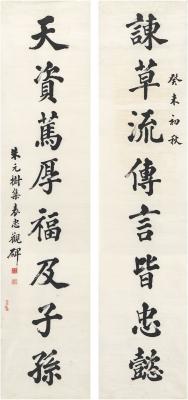 諫草流傳言皆忠懿
癸未初秋
天資篤厚福及子孫
朱元樹集表忠觀碑